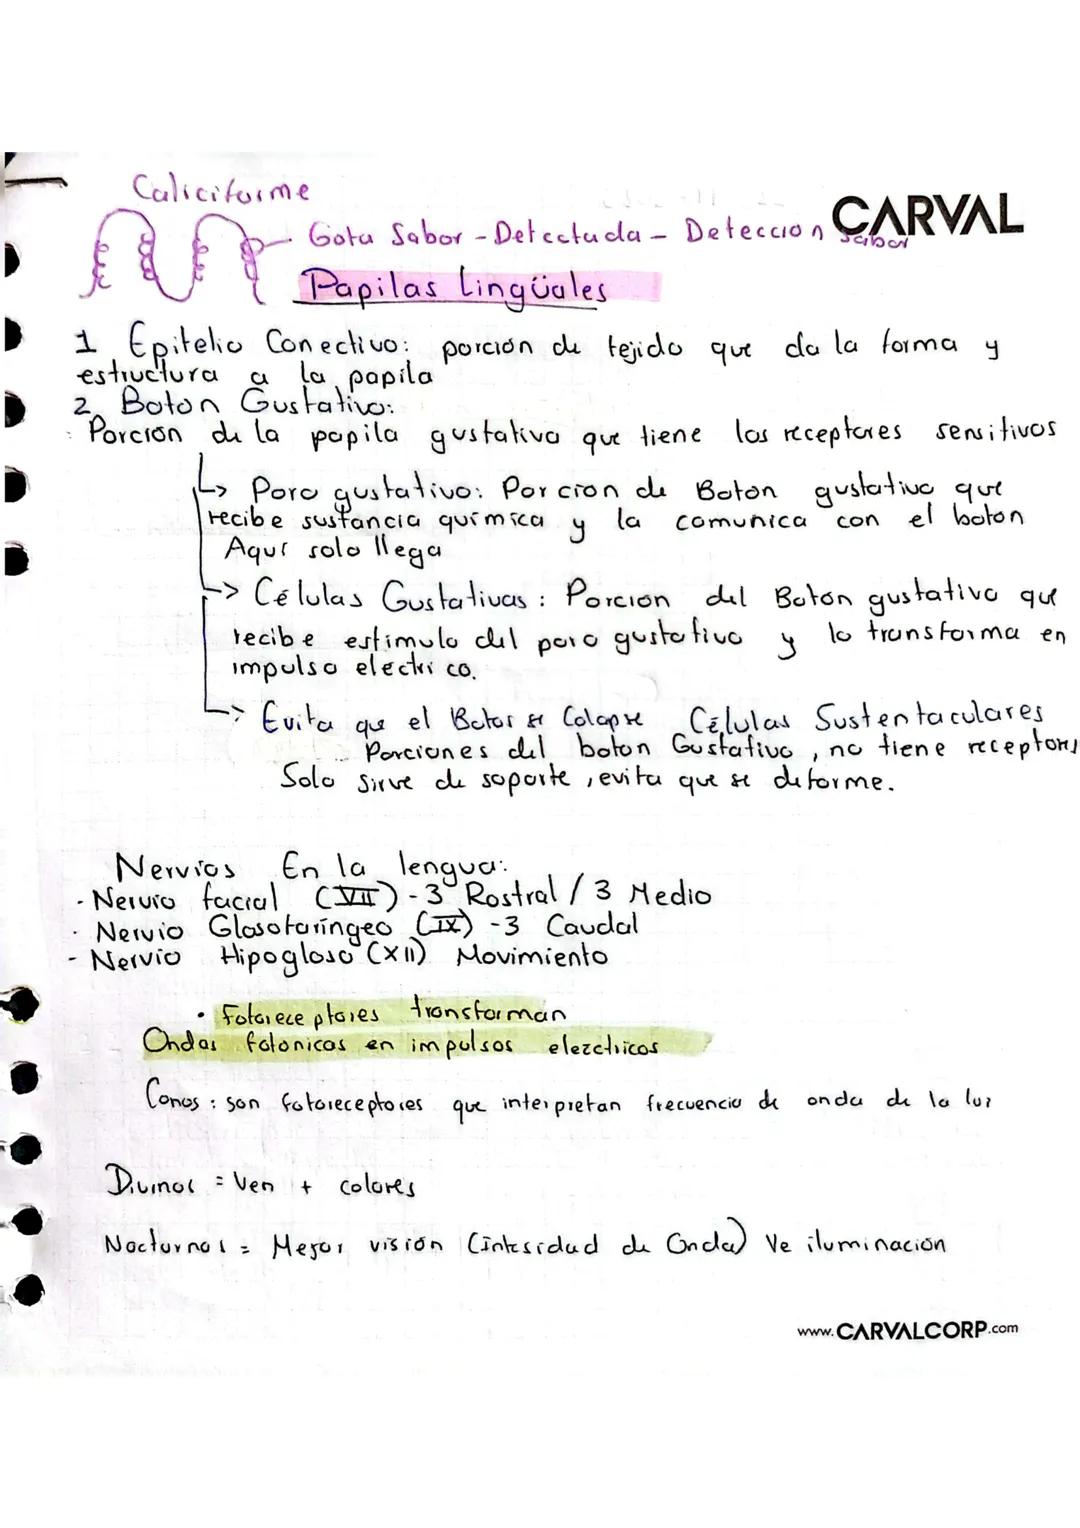 Caliciforme
CARVAL
Gota Sabor - Detectada - Detección Sabor
Papilas Lingüales
1 Epitelio Conectivo: porción de tejido que da la forma y
estructura a la papila
2 Boton Gustativo:
Porción de la papila gustativa que tiene los receptores sensitivos
↳ Poro gustativo: Porcion de Boton gustativo que
recibe sustancia química y la comunica con el boton
Aquí solo llega
↳ Células Gustativas: Porción del Botón gustativo que
recibe estimulo del poro gustativo y lo transforma en
impulso electrico.
↳ Evita que el Boton se Colapse Células Sustentaculares
Porciones del boton Gustativo, no tiene receptores
Solo sirve de soporte, evita que se deforme.
Nervios En la lengua:
- Nervio facial (VII) - 3 Rostral / 3 Medio
- Nervio Glosofaríngeo (IX) - 3 Caudal
- Nervio Hipogloso (XII) Movimiento
• Fotoreceptores transforman
Ondas fotonicas en impulsos elezctricos
Conos: son fotoreceptores que interpretan frecuencia de onda de la luz
Diurnos = Ven + colores
Nocturnos = Mejor visión (Intesidad de Onda) Ve iluminación
www.CARVALCORP.com